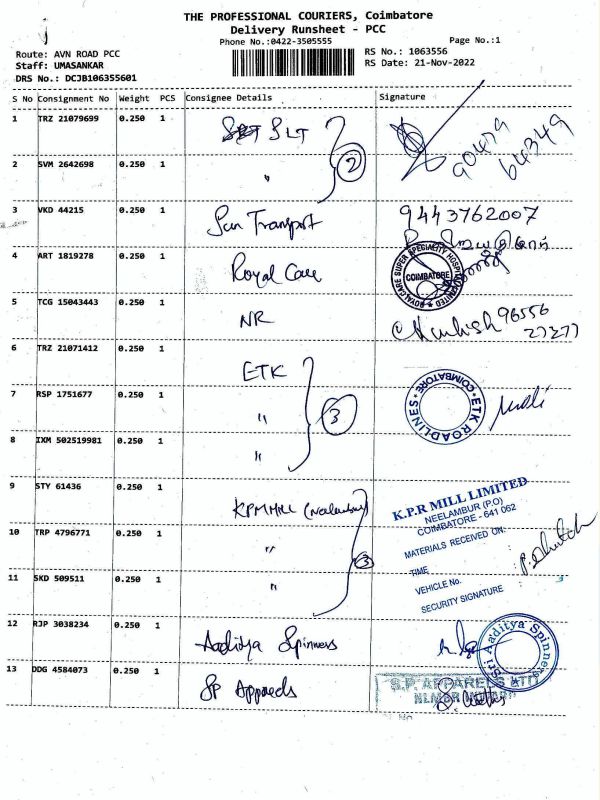 THE PROFESSIONAL COURIERS, Coimbatore
Delivery Runsheet - PCC
Phone No.:0422-3505555
Page No.:1
Route: AVN ROAD PCC
RS No.: 1063556
Staff: UMASANKAR
RS Date: 21-Nov-2022
DRS No.: DCJB106355601
S No Consignment No Weight PCS Consignee Details Signature
1 TRZ 21079699 0.250 1 SLT
90479
64349
2 SVM 2642698 0.250 1 " 2
3 VKD 44215 0.250 1 Sun Transport 9443762007
4 ART 1819278 0.250 1 Royal Care
ROYAL CARE SUPER SPECIALITY HOSPITAL LIMITED
COIMBATORE
5 TCG 15043443 0.250 1 NR 96556
27277
6 TRZ 21071412 0.250 1 ETK
7 RSP 1751677 0.250 1 " 3
ETK ROADLINES * COIMBATORE *
8 IXM 502519981 0.250 1 "
9 STY 61436 0.250 1 KPM Mill (Neelambur)
K.P.R MILL LIMITED
NEELAMBUR (P.O)
COIMBATORE - 641 062
10 TRP 4796771 0.250 1 " 3
MATERIALS RECEIVED ON:
TIME :
11 SKD 509511 0.250 1 "
VEHICLE No. :
SECURITY SIGNATURE :
12 RJP 3038234 0.250 1 Aaditya Spinners
Sri Aaditya Spinners
13 DDG 4584073 0.250 1 SP Apparels
S.P. APPARELS LTD